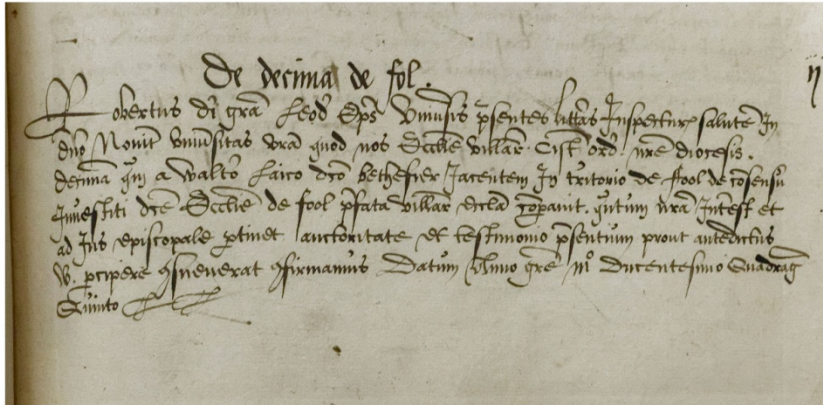 De decima de fol.
Robertus dī grā Leod Epūs Vniūsis p̄sentes litt̄as Inspectur̄ salutē In
dn̄o Nouit vniūsitas vrā quod nos Ecclie villar̄. Cist̄ ord̄. nr̄e diocesis.
decimā qm̄ a Walt̄o Laico dc̄o bethefier Jacentem In t̄ritorio de fool de cōsensu
Inuestiti dc̄e Ecclie de fool p̄fata villar̄ eccl̄a cōpauit. q̄ntum nr̄a Int̄est et
ad Jus episcopale p̄tinet auctoritate et testimonio p̄sentium prout antedictus
W. p̄cipere 9sueuerat 9firmamus Datum Anno gr̄e m̊ Ducentesimo Quadraḡ
Quinto